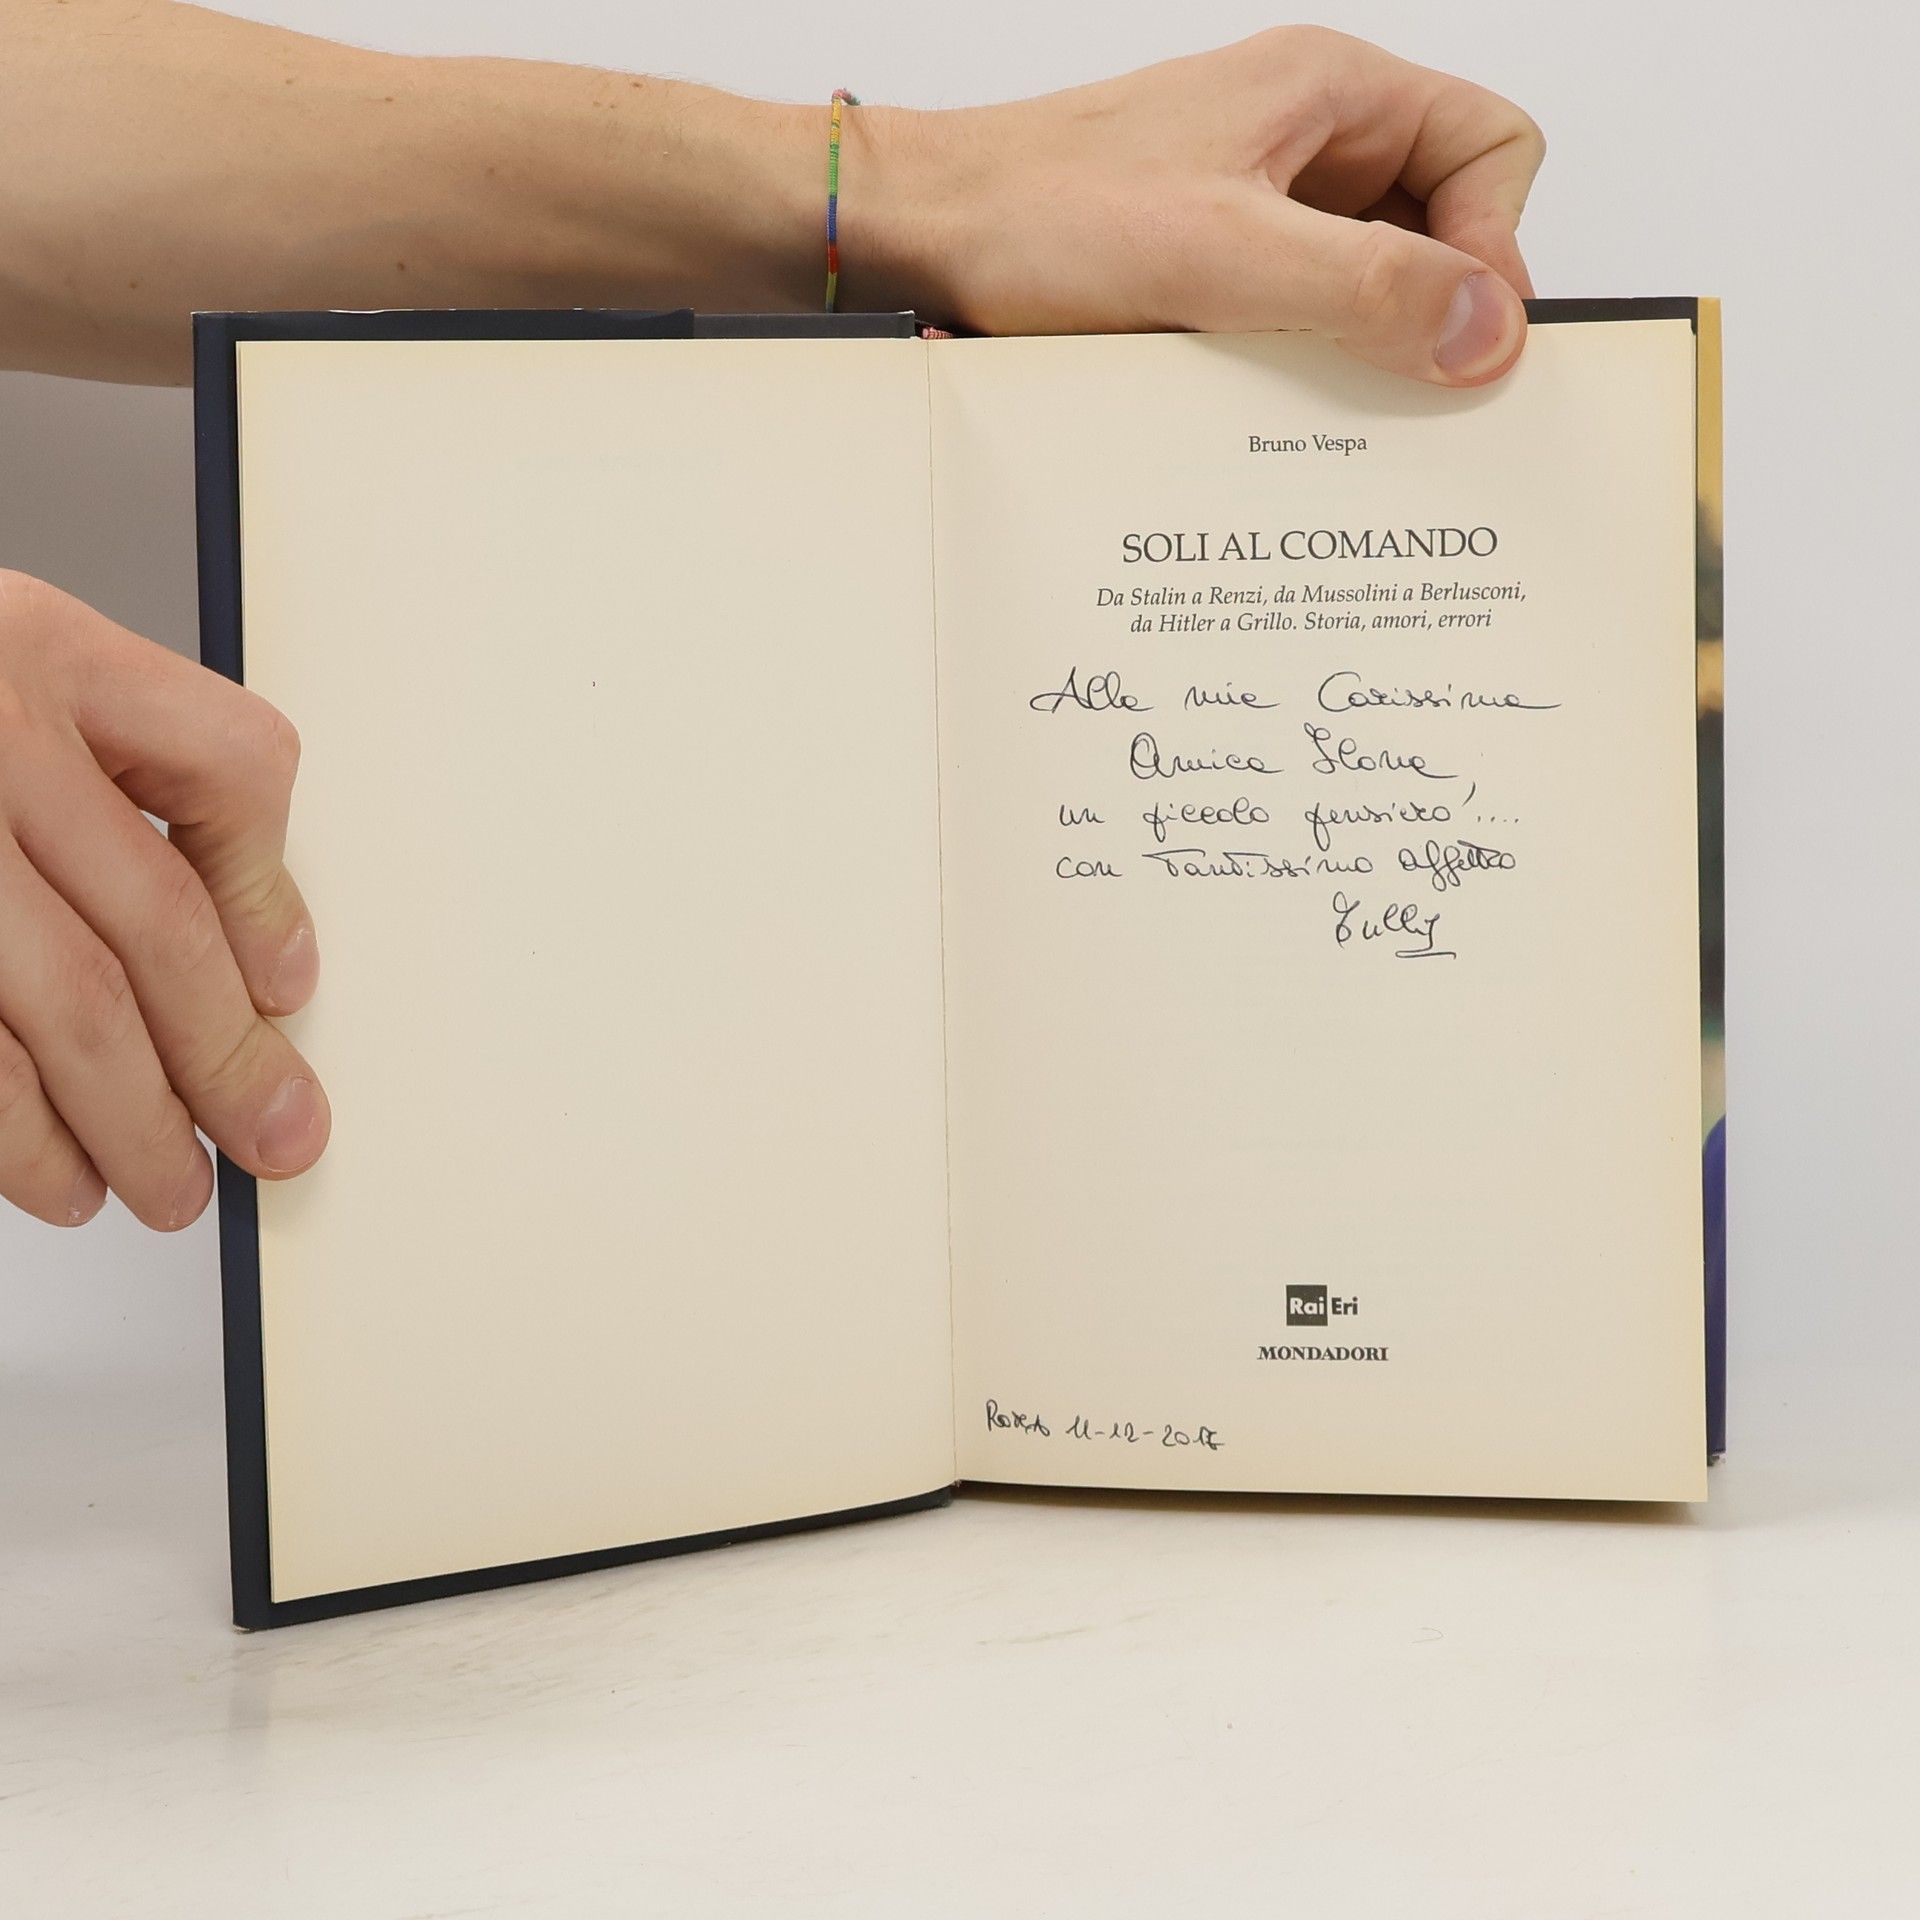 Bruno Vespa
SOLI AL COMANDO
Da Stalin a Renzi, da Mussolini a Berlusconi,
da Hitler a Grillo. Storia, amori, errori
Alla mia Carissima
Amica Ilona,
un piccolo pensiero....
con tantissimo affetto
Rai Eri
MONDADORI
11-12-2017